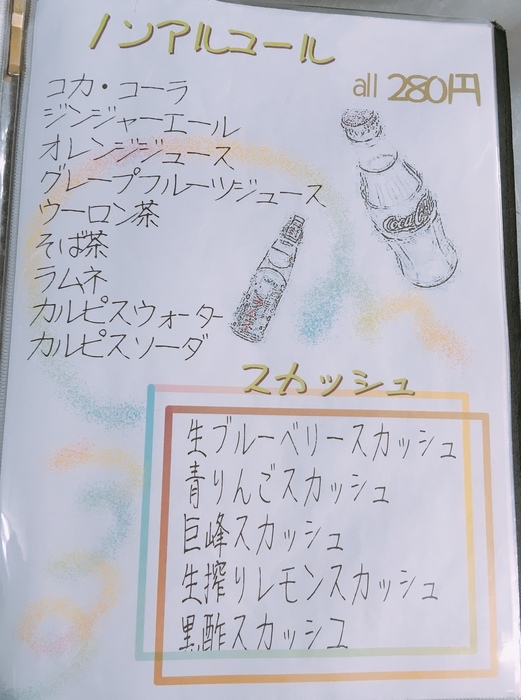 ノンアルコール
all 280円
コカ・コーラ
ジンジャーエール
オレンジジュース
グレープフルーツジュース
ウーロン茶
そば茶
ラムネ
カルピスウォーター
カルピスソーダ
Coca-Cola
スカッシュ
生ブルーベリースカッシュ
青りんごスカッシュ
巨峰スカッシュ
生搾りレモンスカッシュ
黒酢スカッシュ